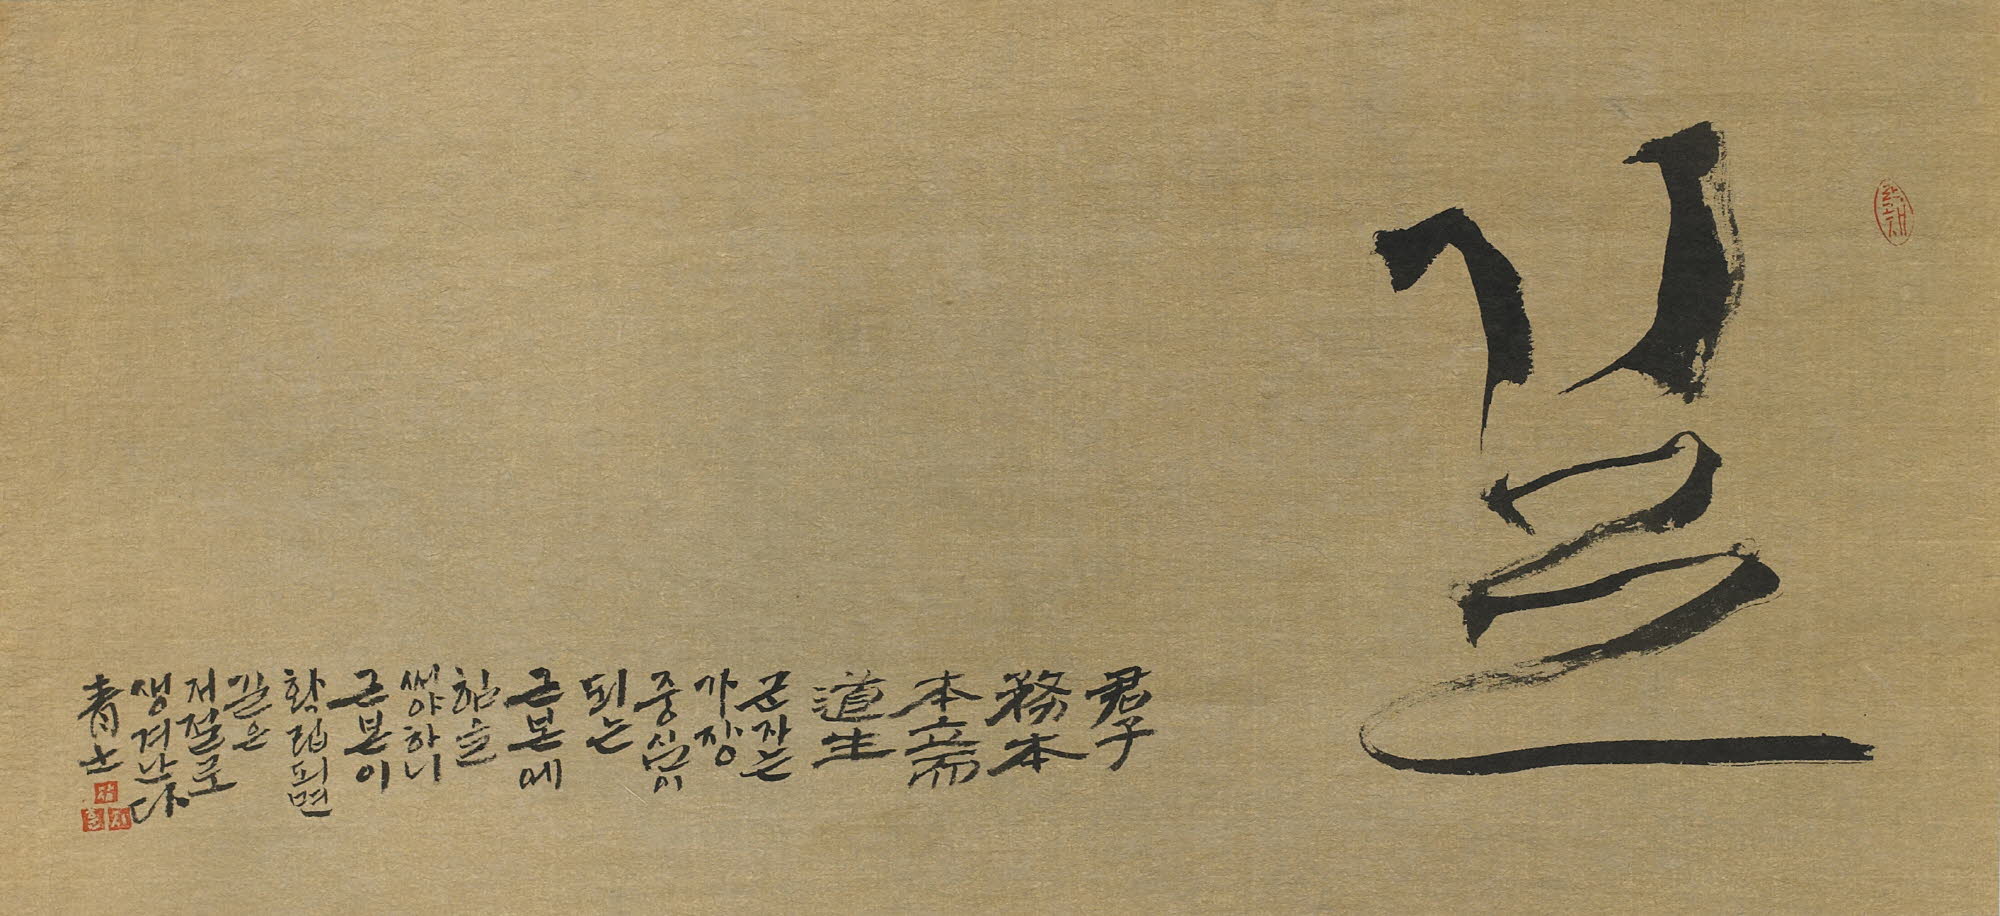 길
君子
務本
本立而
道生
군자는
가장
중심이
되는
근본에
힘을
써야하니
근본이
확립되면
길은
저절로
생겨난다
青士